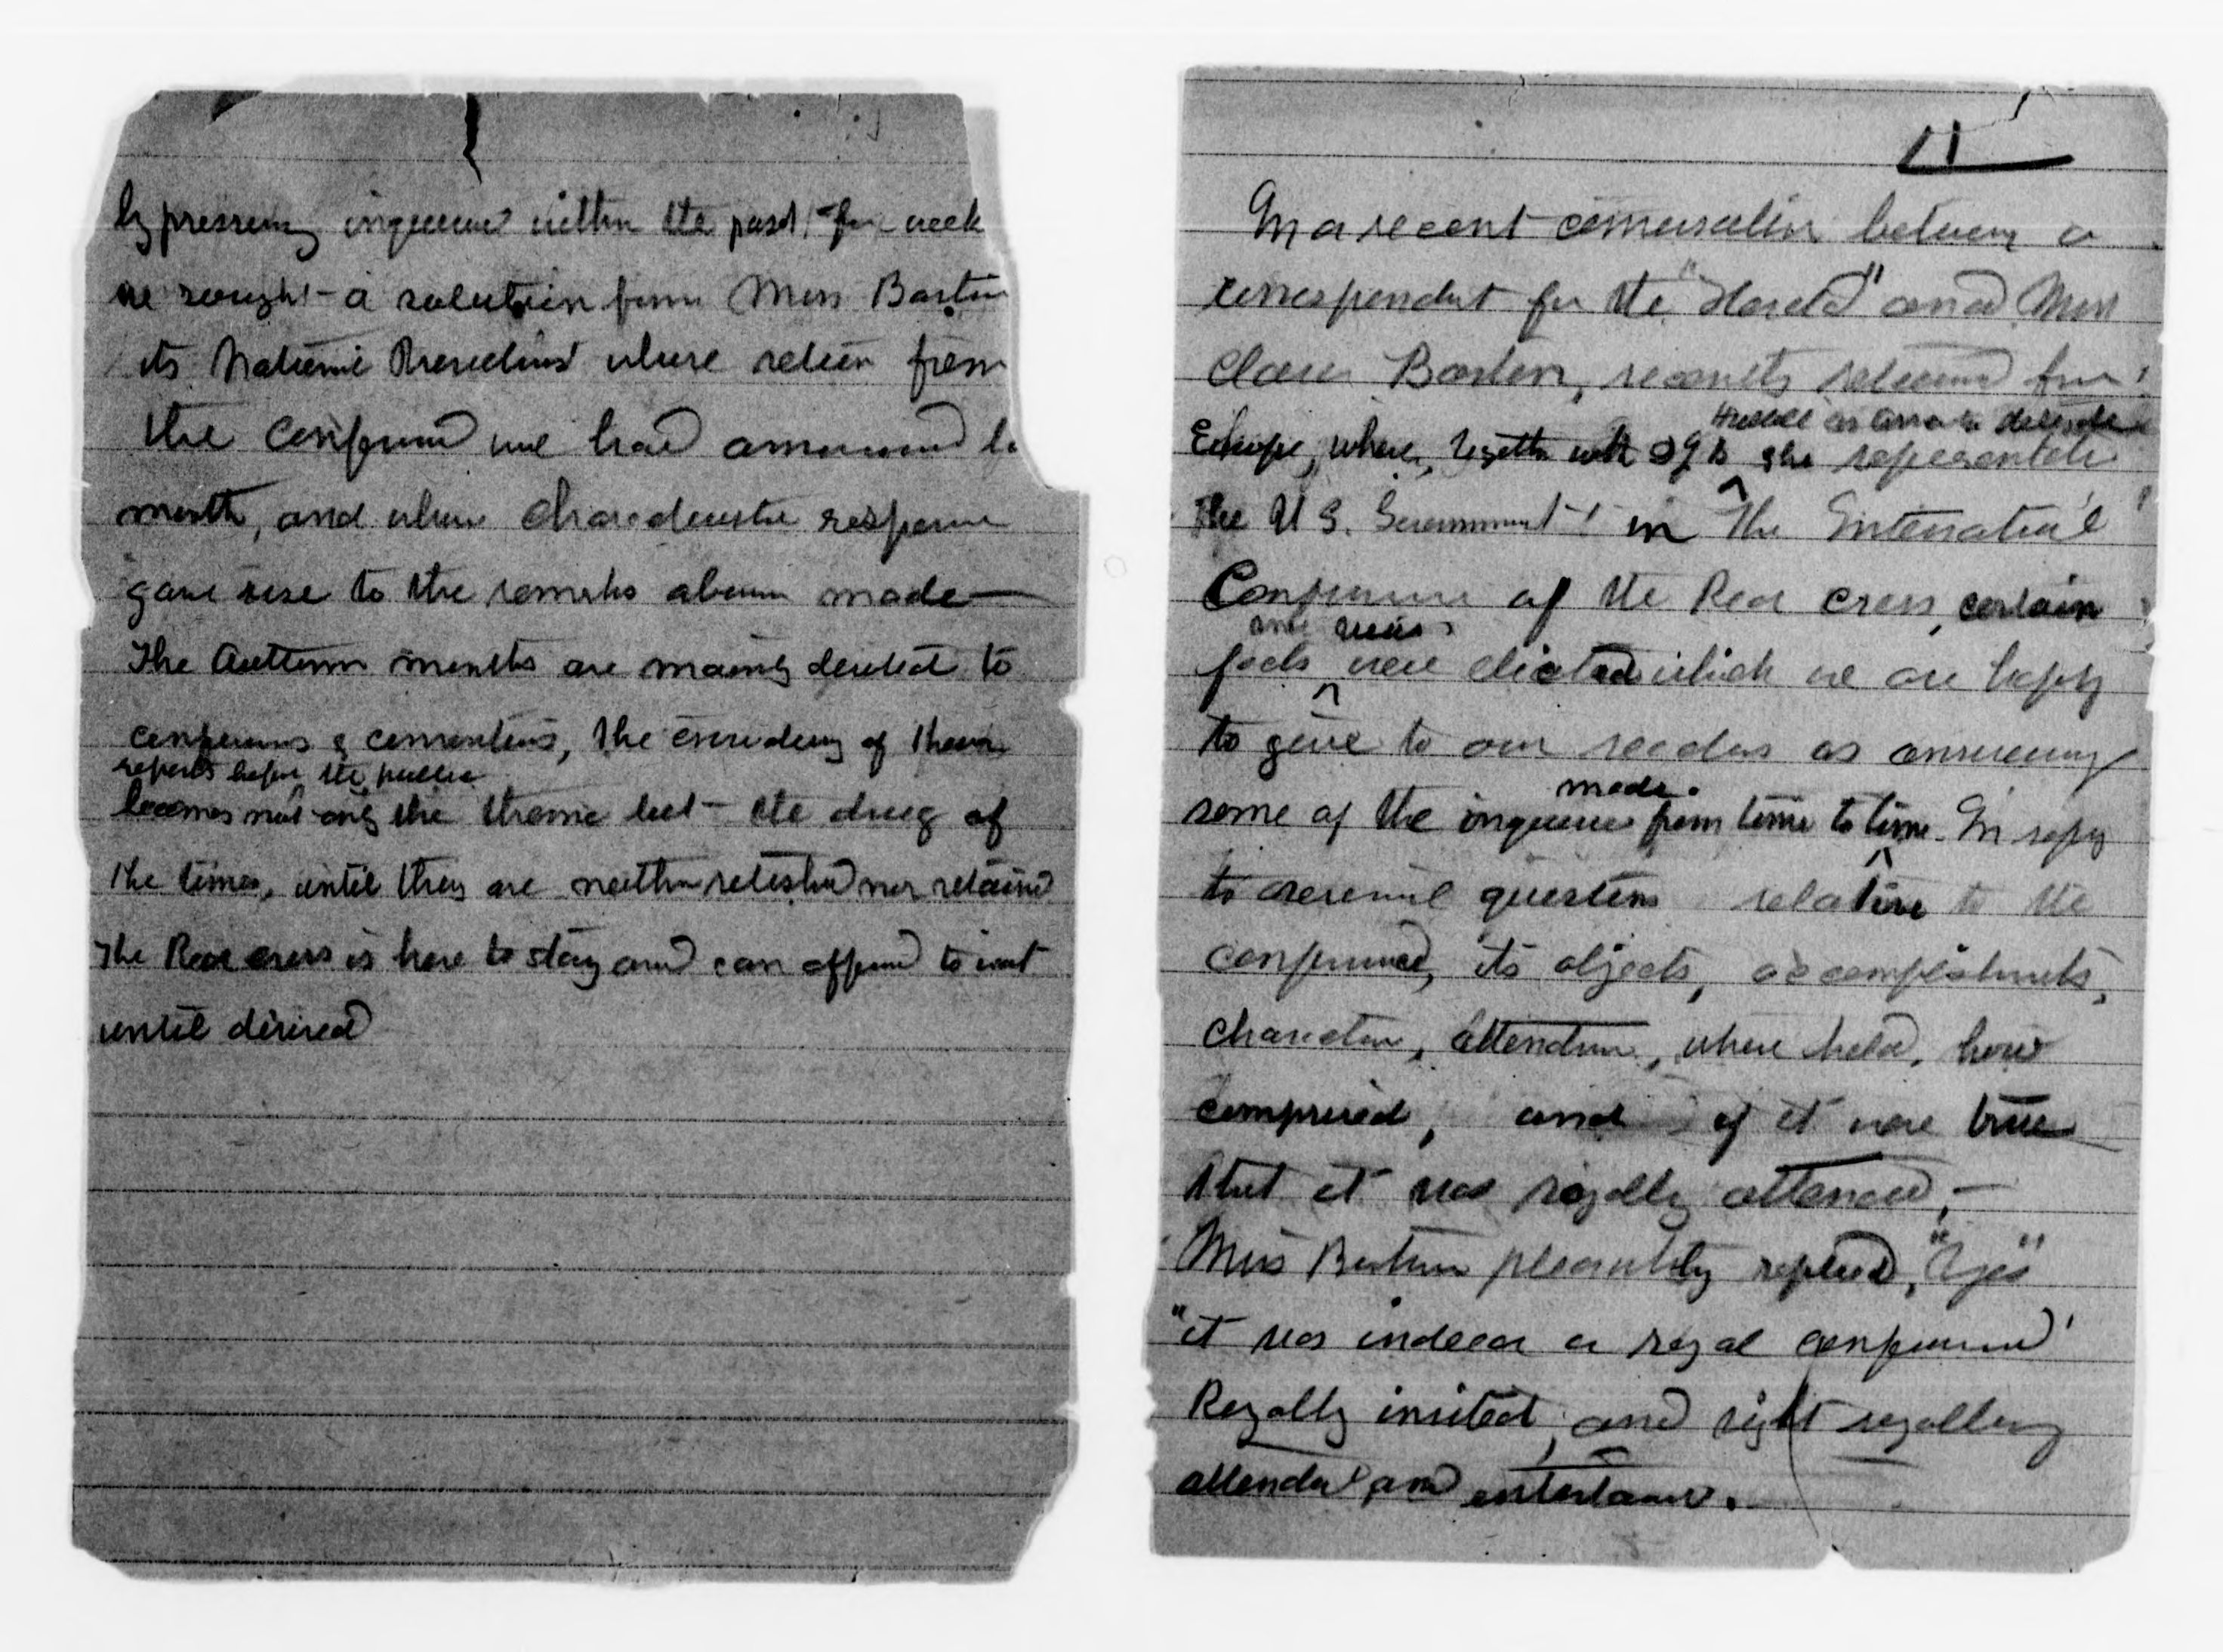 by pressing inquiries within the past few week
we sought a solution from Miss Barton
its National President whose return from
the conference we had announced
month, and whose characteristic response
gave rise to the remarks above made—
The Autumn months are mainly devoted to
conferences & conventions, the crowding of their
reports before the public
becomes not only the theme but the drug of
the times, until they are neither relished nor retained
The Red cross is here to stay and can afford to wait
until desired
11
In a recent conversation between a
correspondent for the "Herald" and Miss
Clara Barton, recently returned from
Hubbell as associate delegate
Europe, where, together with she represented
the U S. Government in the International
Conference of the Red Cross, certain
and views
facts were elicited which we are happy
to give to our readers as answering
made
some of the inquiries from time to time. In reply
to several questions relative to the
conference, its objects, accomplishments,
character, attendance, where held, how
comprised, and if it were true
that it was royally attended,—
Miss Barton pleasantly replied, "Yes"
"it was indeed a royal conference
Royally invited, and right royally
attended and entertained.